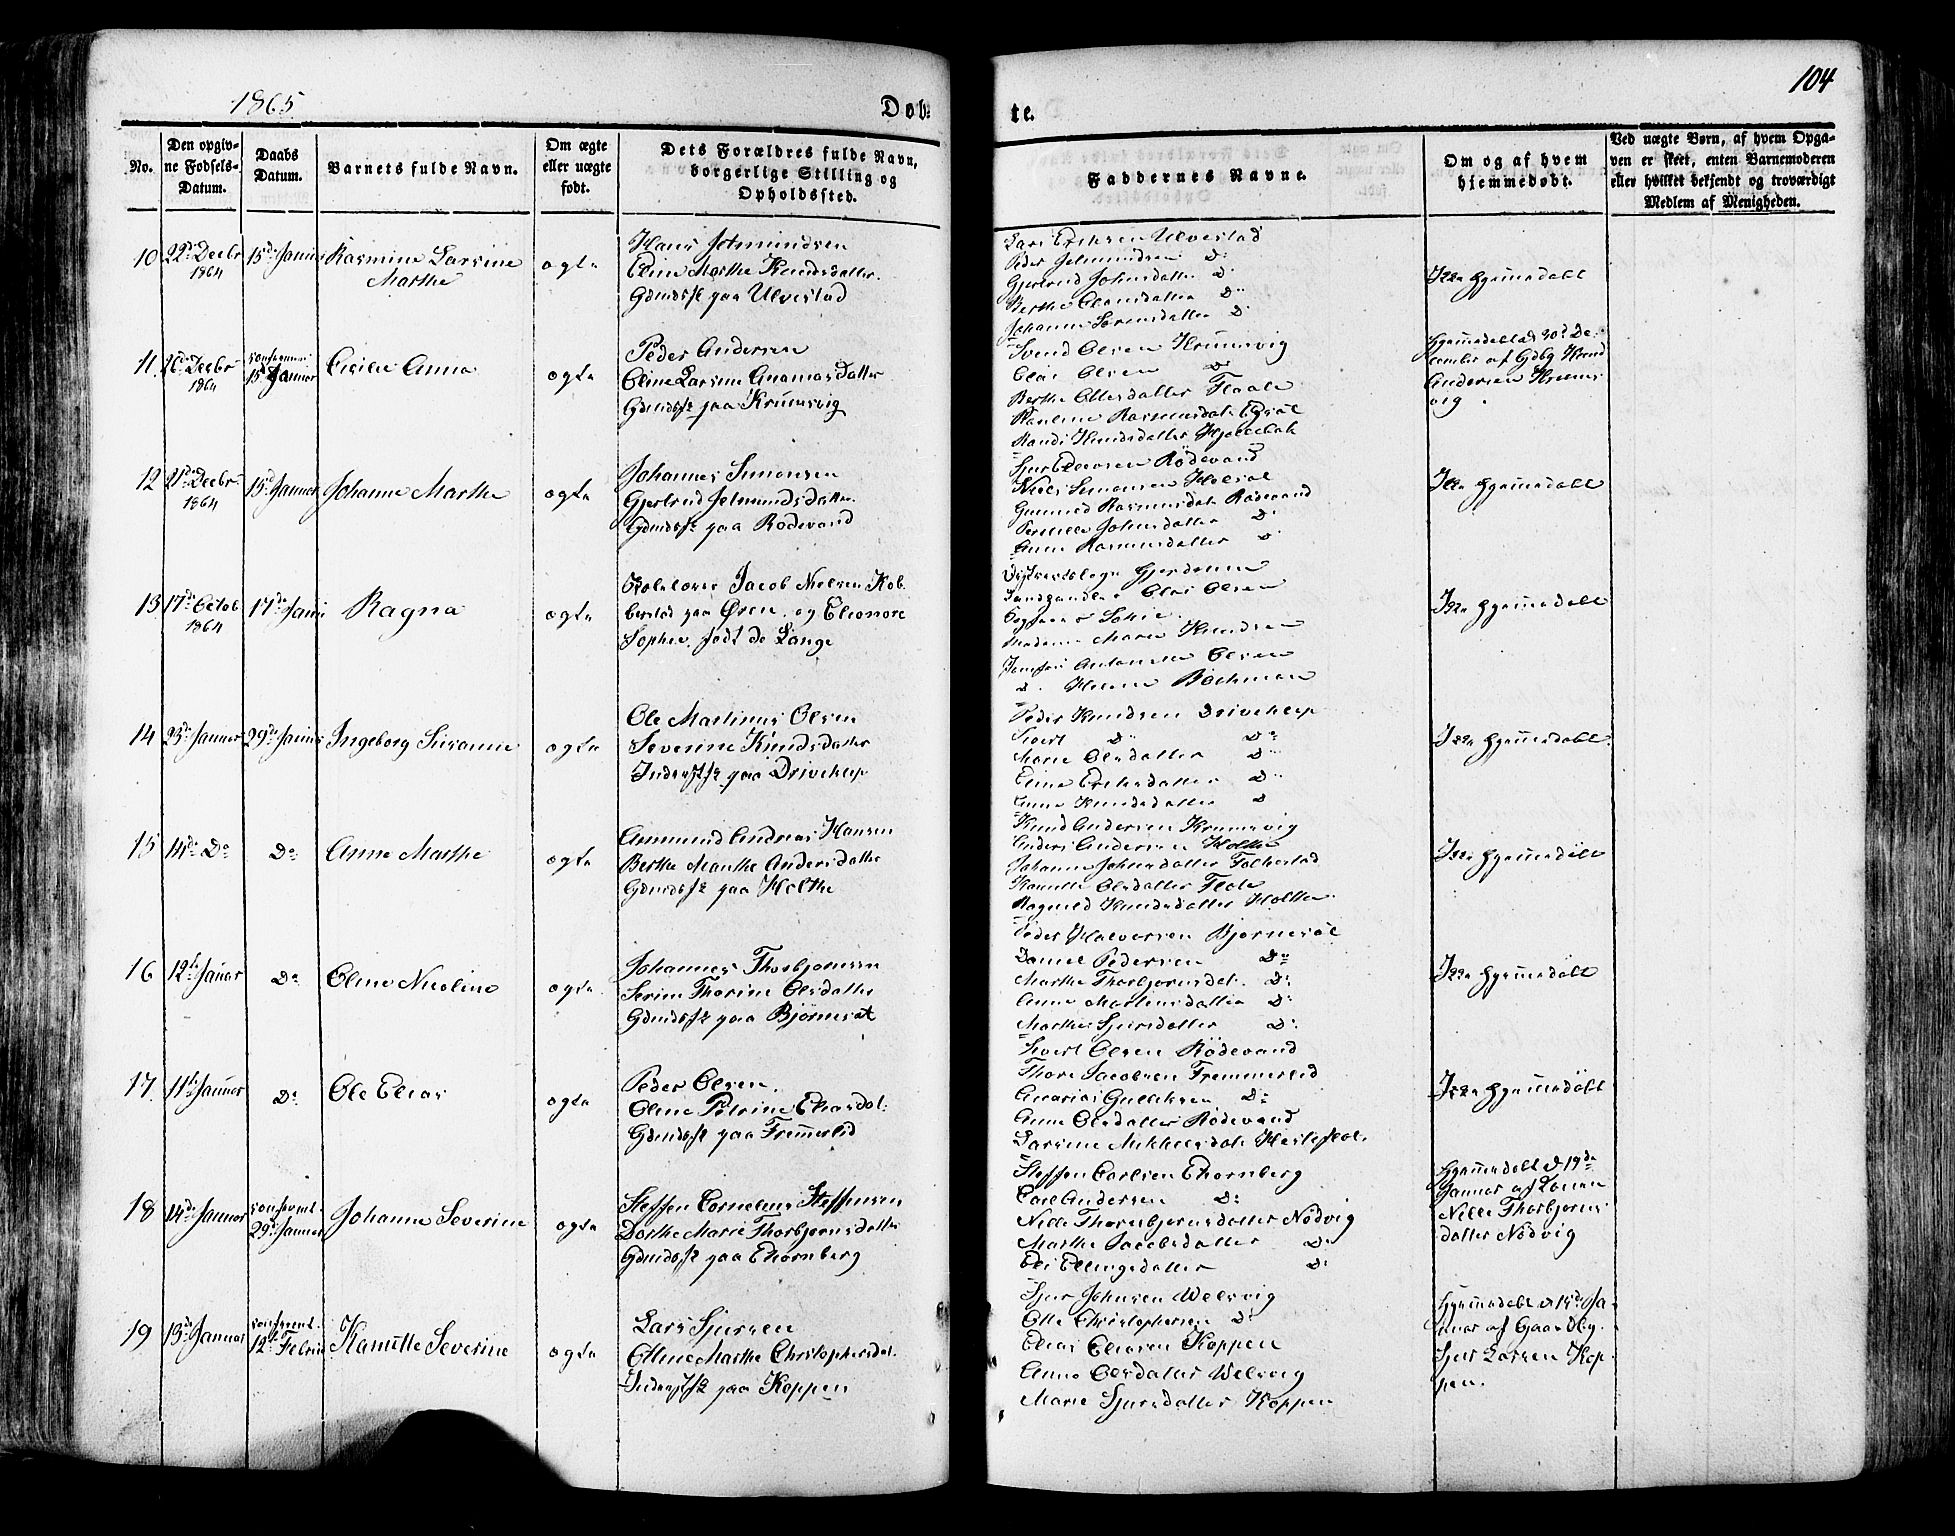 1865
Døb-
te.
104
No.
Den opgiv-
ne Fødsels-
Datum.
Daabs
Datum.
Barnets fulde Navn.
Om ægte
eller uægte
født.
Dets Forældres fulde Navn,
borgerlige Stilling og
Opholdssted.
Faddernes Navne.
Om og af hvem
hjemmedøbt.
Ved uægte Børn, af hvem Opga-
ven er skeet, enten Barnemoderen
eller hvilket bekjendt og troværdigt
Medlem af Menigheden.
10
22de Decbr
1864
15de
Rasmine Larsine
Marthe
ægte
Hans Jetmundsen
Eline Marthe Knudsdatter
Gdmdsf paa Ulvestad
Lars Ulvestad
Peder Jetmundsen D:
Gjertrud Johnsdatter D:
Berthe D:
Johanne Sørensdatter D:
Ikke hjemmedøbt
11
26de Decbr
1864
15de Januar
Anna
ægte
Peder Andersen
Oline Larsine
Gdmdsf paa Krumsvig
Svend Olsen Krumsvig
Claus Olsen D:
Berthe Flaate
Rasmusdat
Randi Knudsdatter
Hjemmedøbt d 30d De-
cember af Gdbg Knud
Andersen Krums-
vig.
12
21de Decbr
1864
15d Januar
Johanne Marthe
ægte
Johannes Simonsen
Gjertrud Jetmundsdatter
Gdmdsf paa Rødevand
Rødevand
Niels Simonsen
Gunnild Rasmusdat Rødevand
Pernille Johnsdatter D:
Anne Rasmusdatter D:
Ikke hjemmedøbt
13
17de Octob
1864
17de
Ragna
ægte
Jacob Nielsen Kob-
berstad paa Ørsn. og Eleonore
Sophie, født de Lange
Landhandler Claus Olsen
Marie Knudsen
Jomfru Olsen
D. Bachman
Ikke hjemmedøbt
14
23de Januar
29de
Ingeborg Susanne
ægte
Ole Martinus Olsen
Severine Knudsdatter
Inderstsf paa Driveklep
Peder Knudsen Driveklep
Sivert D: D:
Marie Olsdatter D:
Eline D:
Anne Knudsdatter D
Ikke hjemmedøbt.
15
14de Do
Do
Anne Marthe
ægte
Ammund Andreas Hansen
Berthe Marthe Andersdatter
Gdmdsf paa Holthe
Knud Andersen Krumsvig
Anders Andersen Holthe
Johanne Johnsdatter Folkestad
Olsdatter Flote
Ragnild Knudsdatter Holthe
Ikke hjemmedøbt
16
12te Januar
Do
Oline Nicoline
ægte.
Johannes Thorbjørnsen
Serine Thorine Olsdatter
Gdmdsf paa Bjørneset
Peder Halvorsen
Daniel Pedersen D:
Marthe Thorbjørnsdat. D:
Anne Martensdatter D:
Marthe Sjursdatter D:
Ikke hjemmedøbt
17
11te Januar
Do
Ole Elias
ægte
Peder Olsen.
Oline Petrine Eliasdat:
Gdmdsf paa Fremmerlid
Sivert Olsen Rødevand
Thore Jacobsen Fremmerlid
D:
Anne Olsdatter Rødevand
Larsine Mikkelsdat
Ikke hjemmedøbt
18
14de Januar
29de Januar
Johanne Severine
ægte
Steffen Cornelius Steffensen
Dorthe Marie Thorbjørnsdatter
Gdmdsf paa Ehornberg
Steffen Carlsen Ehornberg
Carl Andersen D:
Nille Thorbjørnsdatter Nødvig
Marthe Jacobsdatter D:
Eli Ellingsdatter D:
Hjemmedøbt d 19de
Januar af Konen
Nille Thorbjørns-
datter Nødvig
19
13de Januar
12te Februar
Kanutte Severine
ægte
Lars Sjursen
Olline Marthe Christophersdat.
Inderstsf paa Koppen
Sjur Johnsen Welsvig
Olle Christophersen D:
Elias Eliasen Koppen
Anne Olsdatter Welsvig
Marie Sjursdatter Koppen
Hjemmedøbt d 15de Ja-
nuar af Gaardbg.
Sjur Larsen Kop-
pen.